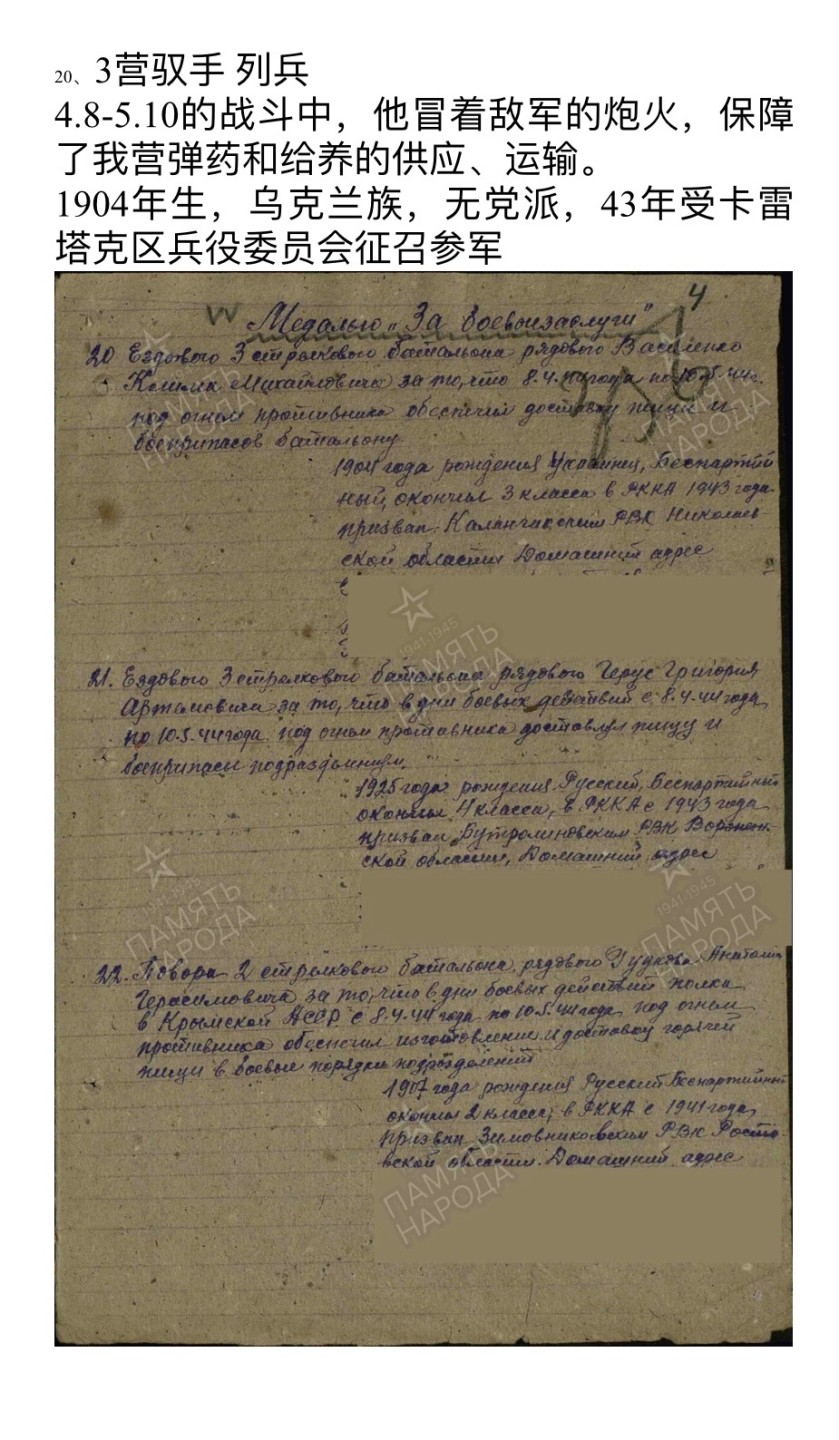 20、3营驭手 列兵
4.8-5.10的战斗中，他冒着敌军的炮火，保障
了我营弹药和给养的供应、运输。
1904年生，乌克兰族，无党派，43年受卡雷
塔克区兵役委员会征召参军
4
Медалью „За боевые заслуги"
20 Ездового 3 стрелкового батальона рядового Василенко
Михайловича за то, что 8.4.44 года по 10.5.44г.
под огнем противника обеспечил доставку пищи и
боеприпасов батальону
1904 года рождения Украинец, Беспартий
ный, окончил 3 класса в РККА 1943 года
призван Каланчакским РВК Николаев-
ской области Домашний адрес
21. Ездового 3 стрелкового батальона рядового Герус Григория
Артамовича за то, что в дни боевых действий с 8.4.44 года
по 10.5.44 года под огнем противника доставлял пищу и
боеприпасы подразделениям.
1925 года рождения Русский, Беспартийный
окончил 4 класса, в РККА с 1943 года
призван Бутурлиновским РВК Воронеж-
ской области, Домашний адрес
22. Повора 2 стрелкового батальона рядового Анатолия
Герасимовича за то, что в дни боевых действий полка
в Крымской АССР с 8.4.44 года по 10.5.44 года под огнем
противника обеспечил изготовление и доставку горячей
пищи в боевые порядки подразделений
1907 года рождения Русский Беспартийный
окончил 2 класса, в РККА с 1941 года,
призван Зимовниковским РВК Росто-
вской области. Домашний адрес
1941-1945
ПАМЯТЬ
НАРОДА
1941-1945
ПАМЯТЬ
НАРОДА
1941-1945
ПАМЯТЬ
НАРОДА
ПАМЯТЬ
НАРОДА